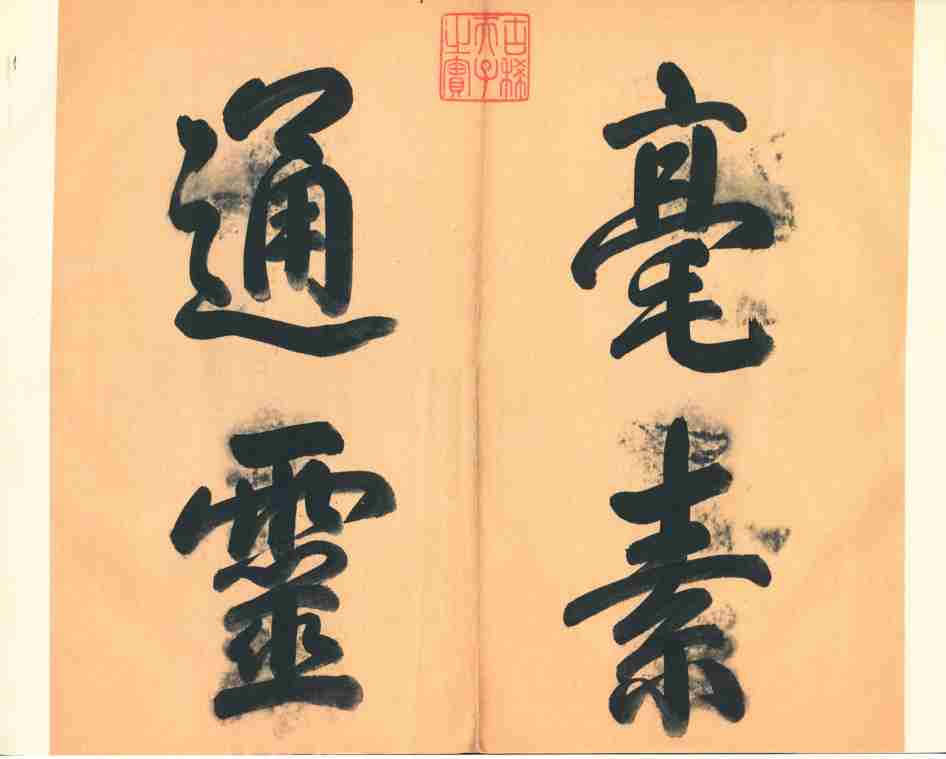 毫素
通靈
古稀
天子
之寶